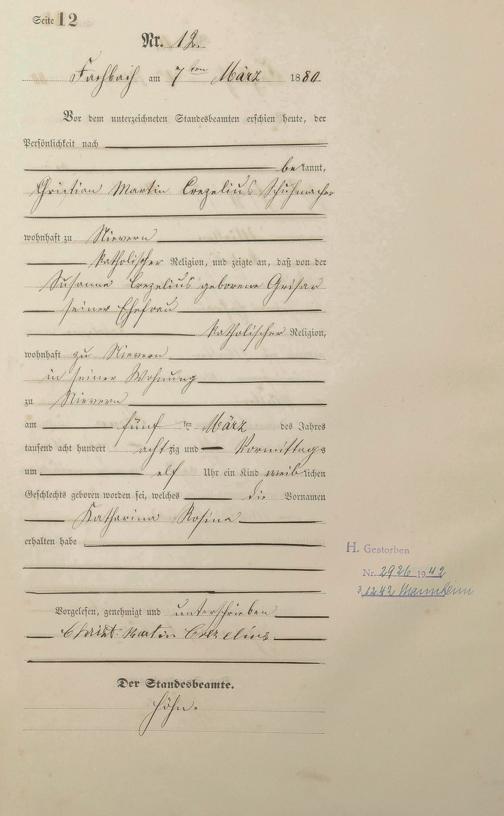 Seite 12
Nr. 12.
Fachbach am 7ten März 1880.
Vor dem unterzeichneten Standesbeamten erschien heute, der
Persönlichkeit nach
bekannt,
Christian Martin Crezelius Schuhmacher
wohnhaft zu Nievern
katholischer Religion, und zeigte an, daß von der
Susanna Crezelius geborene Grisar
seiner Ehefrau
katholischer Religion,
wohnhaft zu Nievern
in seiner Wohnung
zu Nievern
am fünf ten März des Jahres
tausend acht hundert achtzig und Vormittags
um elf Uhr ein Kind weiblichen
Geschlechts geboren worden sei, welches die Vornamen
Katharina Rosina
erhalten habe
Vorgelesen, genehmigt und unterschrieben
Christ. Martin Crezelius
Der Standesbeamte.
Höhn.
H. Gestorben
Nr. 2926 1942
Mannheim